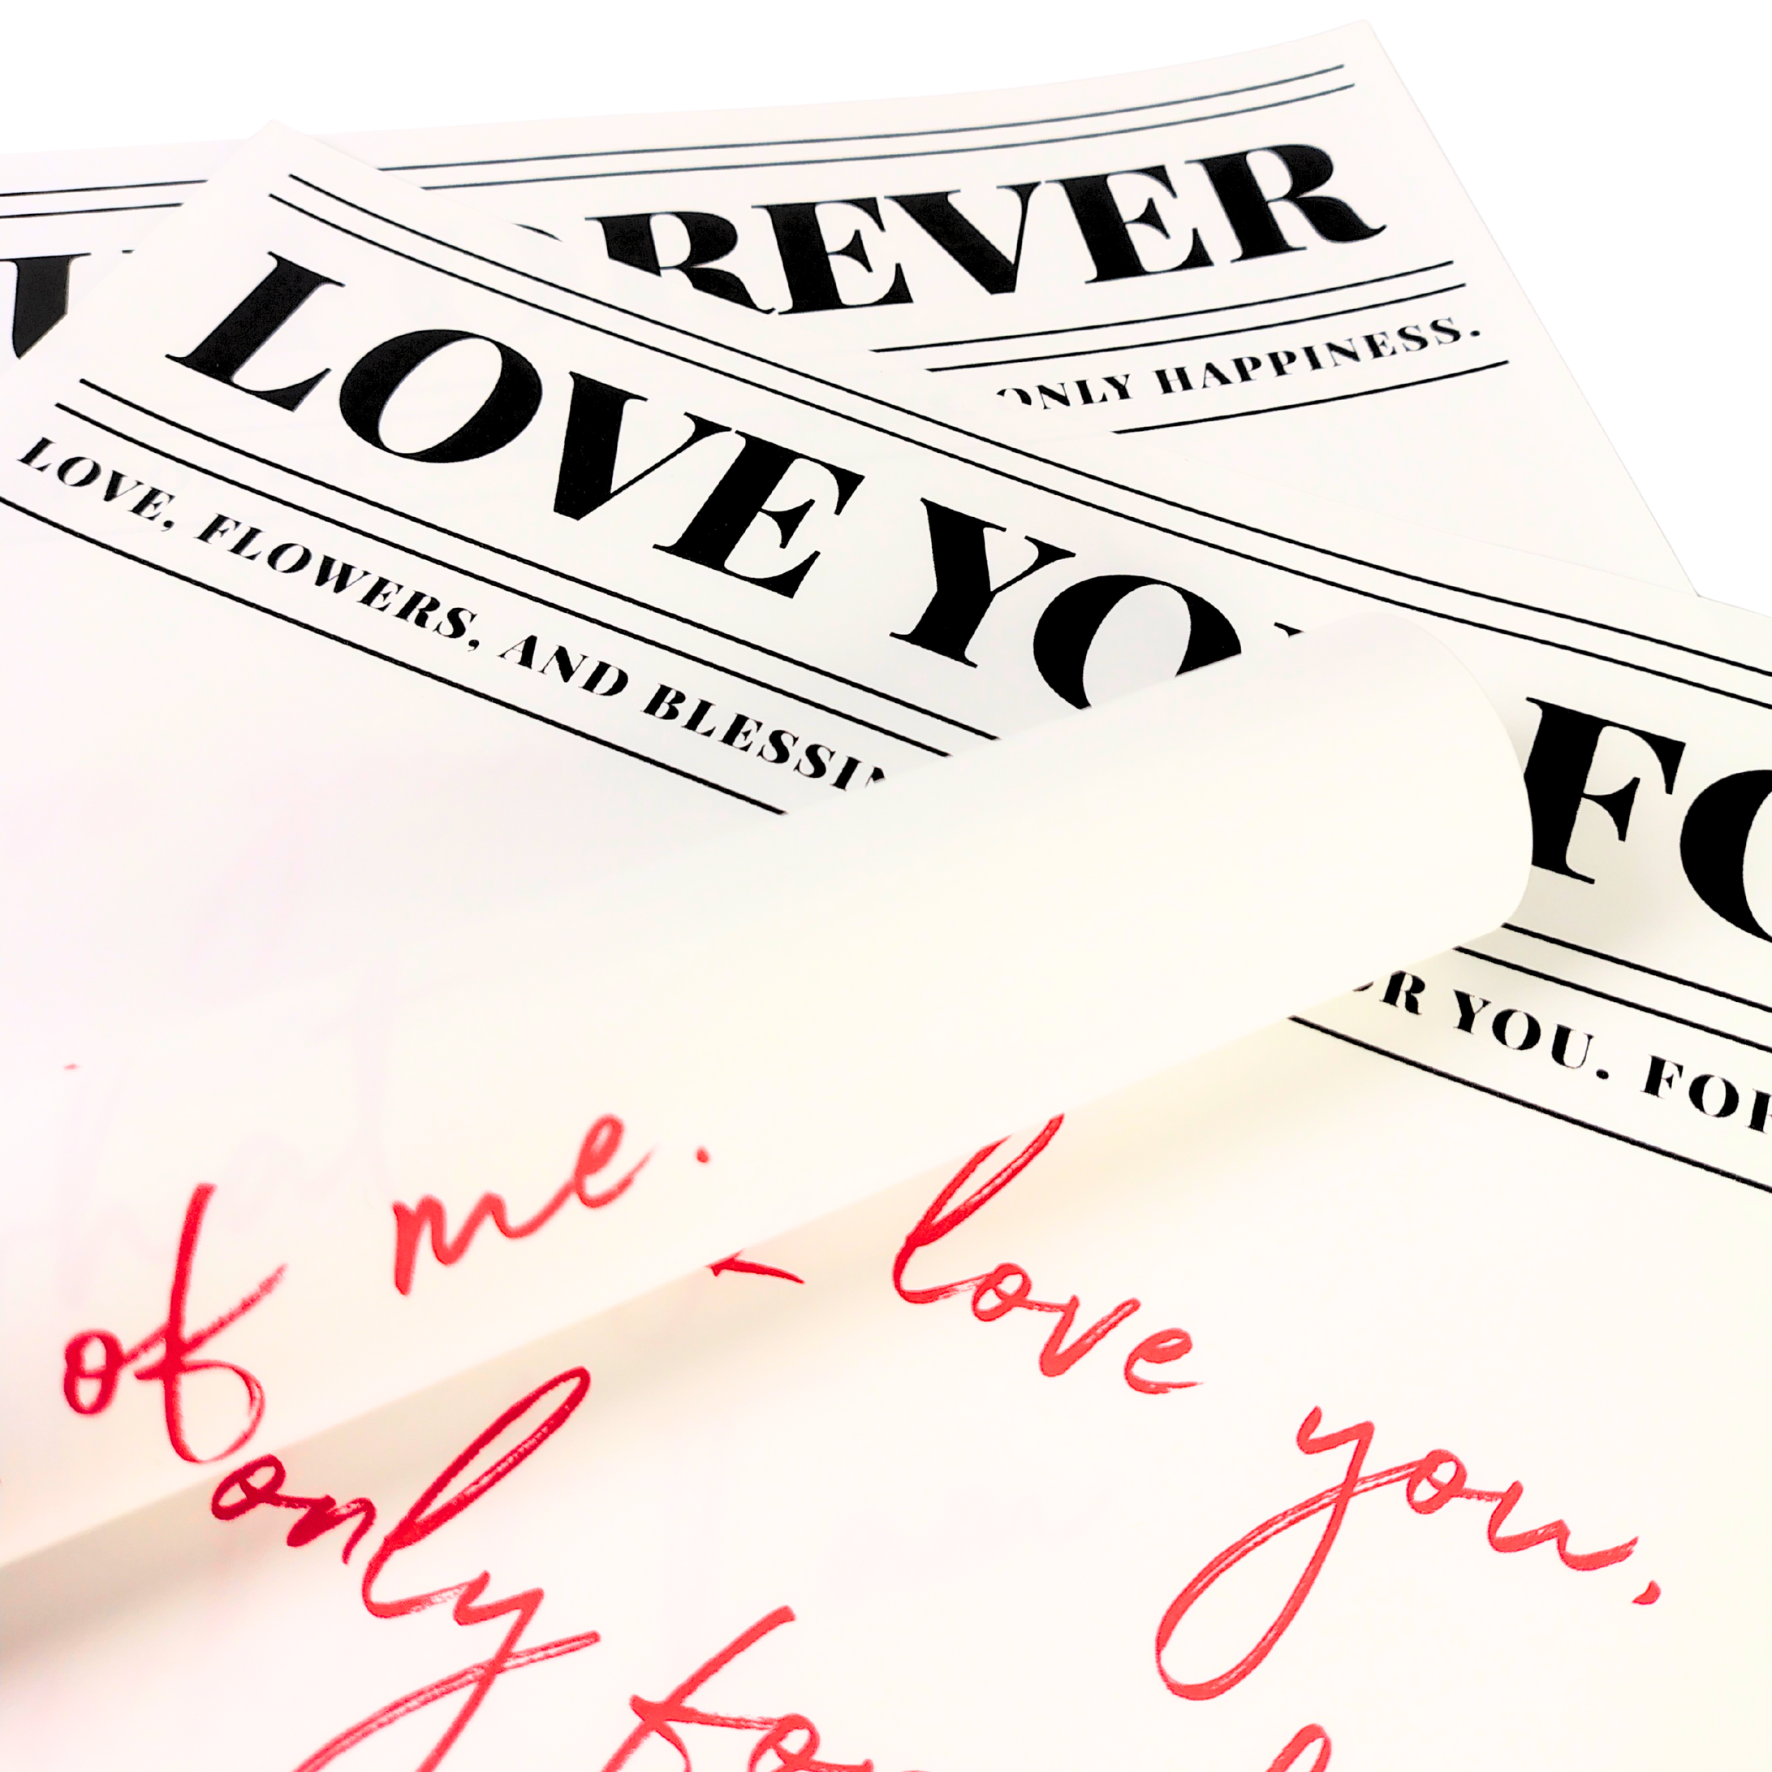 REVER
ONLY HAPPINESS.
LOVE YO
FO
LOVE, FLOWERS, AND BLESSIN
R YOU. FOR
of me.
love you,
only for